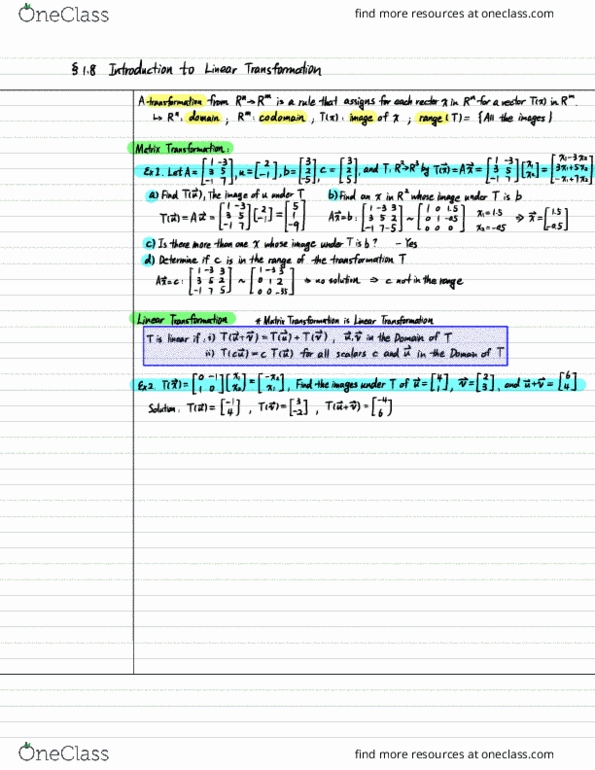 OneClass find more resources at oneclass.com
§1.8 Introduction to Linear Transformation
A transformation from Rⁿ→Rᵐ is a rule that assigns for each vector x in Rⁿ for a vector T(x) in Rᵐ.
↳ Rⁿ: domain ; Rᵐ: codomain , T(x): image of x ; range(T) = {All the images}
Matrix Transformation:
Ex1. Let A = [1 -3; 3 5; -1 7], u = [2; -1], b = [3; 2; -5], c = [3; 2; 5], and T: R²→R³ by T(x⃗) = Ax⃗ = [1 -3; 3 5; -1 7][x₁; x₂] = [x₁-3x₂; 3x₁+5x₂; -x₁+7x₂]
a) Find T(u⃗), The image of u under T b) Find an x in R² whose image under T is b
T(u⃗) = Au⃗ = [1 -3; 3 5; -1 7][2; -1] = [5; 1; -9] Ax⃗=b: [1 -3 3; 3 5 2; -1 7 -5] ~ [1 0 1.5; 0 1 -0.5; 0 0 0] x₁=1.5 x₂=-0.5 ⇒ x⃗ = [1.5; -0.5]
c) Is there more than one x whose image under T is b? - Yes
d) Determine if c is in the range of the transformation T
Ax⃗=c: [1 -3 3; 3 5 2; -1 7 5] ~ [1 -3 3; 0 1 2; 0 0 -35] ⇒ no solution ⇒ c not in the range
Linear Transformation * Matrix Transformation is Linear Transformation
T is linear if: i) T(u⃗+v⃗) = T(u⃗) + T(v⃗), u⃗,v⃗ in the Domain of T
ii) T(cu⃗) = c T(u⃗) for all scalars c and u⃗ in the Domain of T
Ex2. T(x⃗) = [0 -1; 1 0][x₁; x₂] = [-x₂; x₁], Find the images under T of u⃗ = [4; 1], v⃗ = [2; 3], and u⃗+v⃗ = [6; 4]
Solution: T(u⃗) = [-1; 4], T(v⃗) = [3; -2], T(u⃗+v⃗) = [-4; 6]
OneClass find more resources at oneclass.com